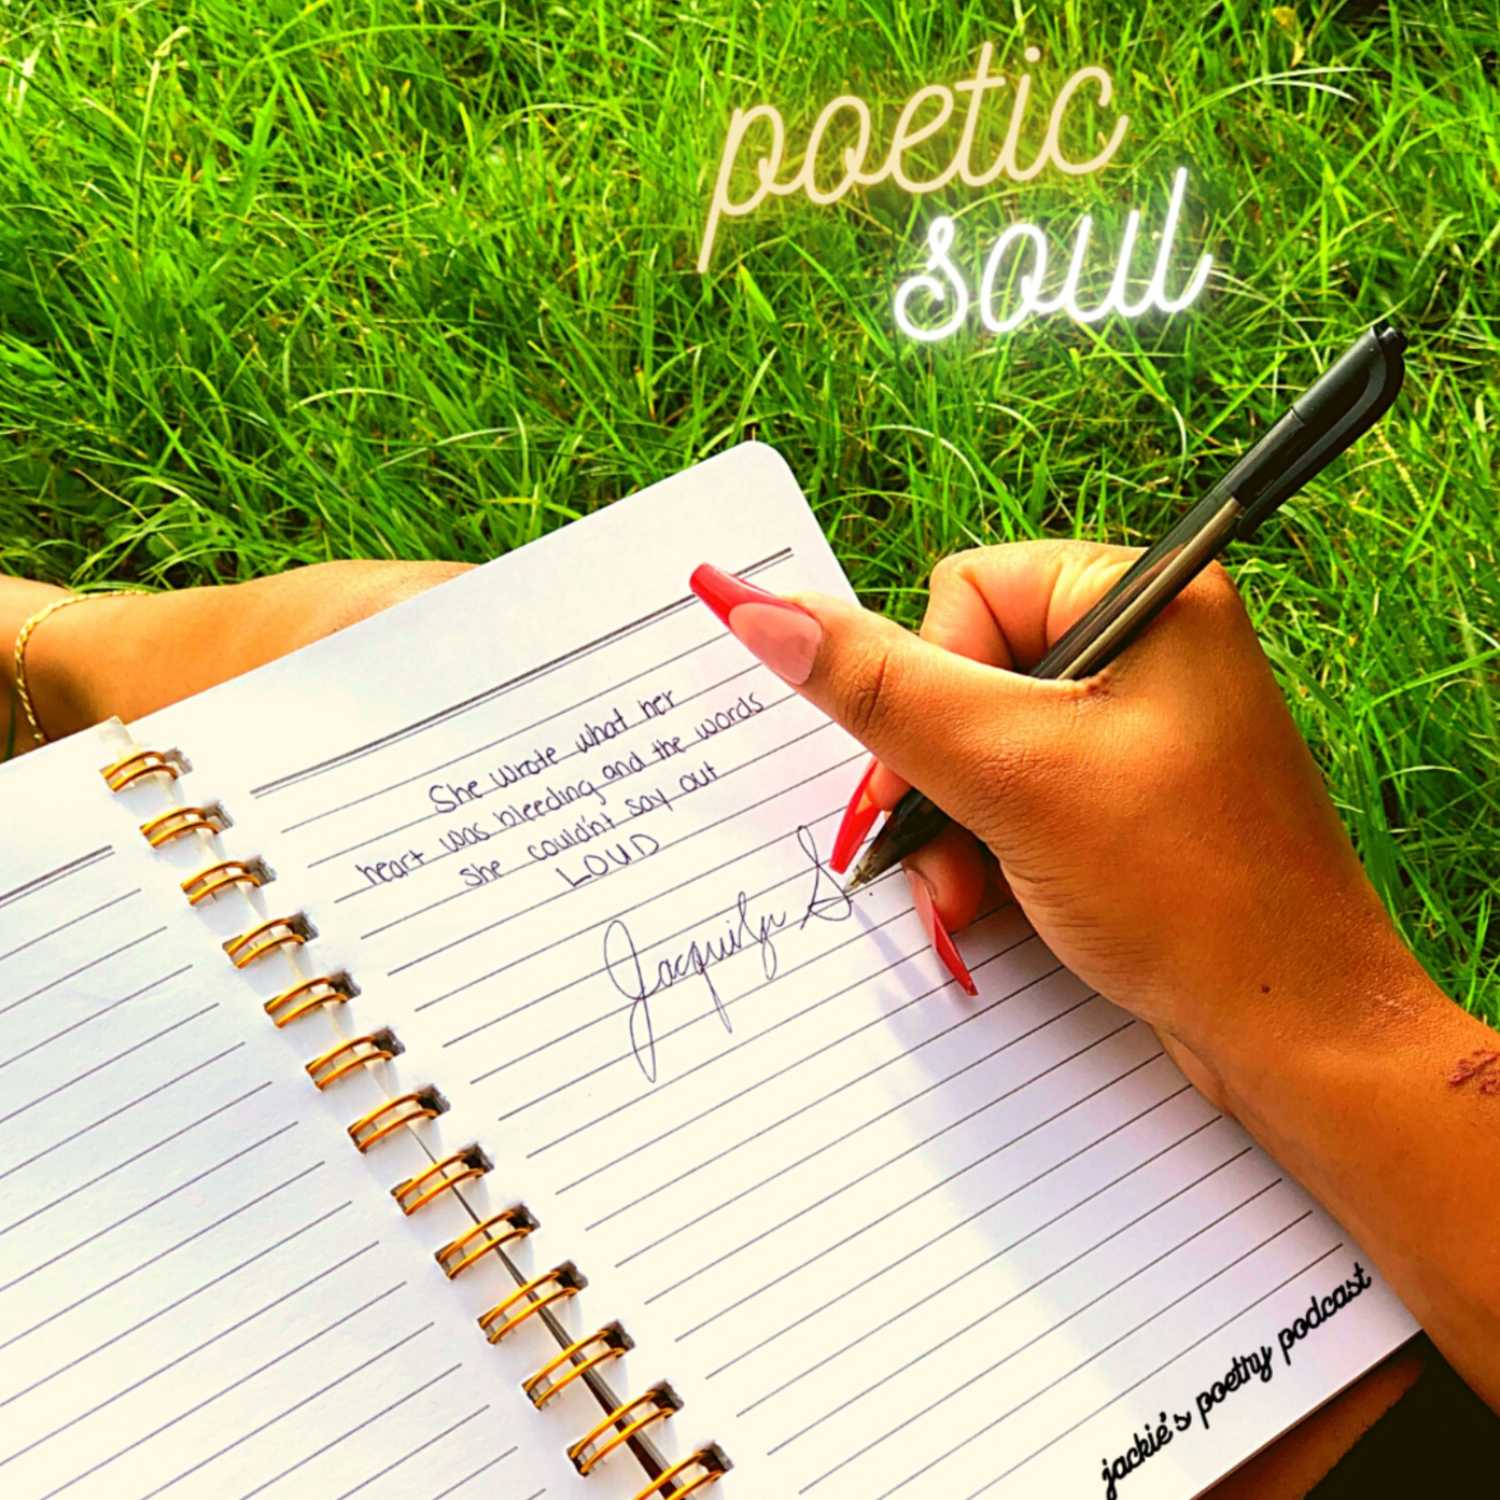 poetic
soul
She wrote what her
heart was bleeding and the words
she couldn't say out
LOUD
Jacquilyn S.
jackie's poetry podcast